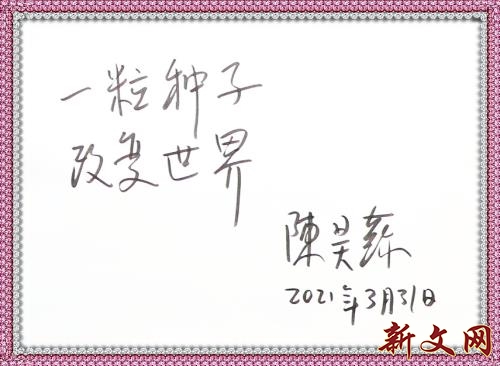 一粒种子
改变世界
陳昊蘇
2021年3月31日
新文网